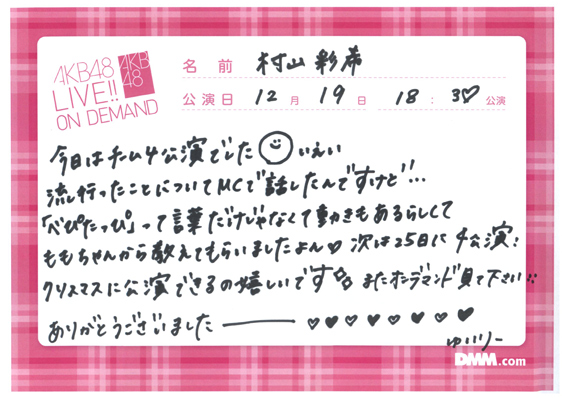 AKB48
LIVE!!
ON DEMAND
AKB
48
名前 村山彩希
公演日 12月 19日 18:30公演
今日はチーム4公演でした いぇい
流行ったことについてMCで話したんですけど!!…
「べびたっぴ」って言葉だけじゃなくて動きもあるらしくて
ももちゃんから教えてもらいましたよん♡ 次は25日に4公演:
クリスマスに公演できるの嬉しいです またオンデマンド見て下さい!!
ありがとうございました――― ♡♥♥♥♥♥♥♡♥
ゆいりー
DMM.com